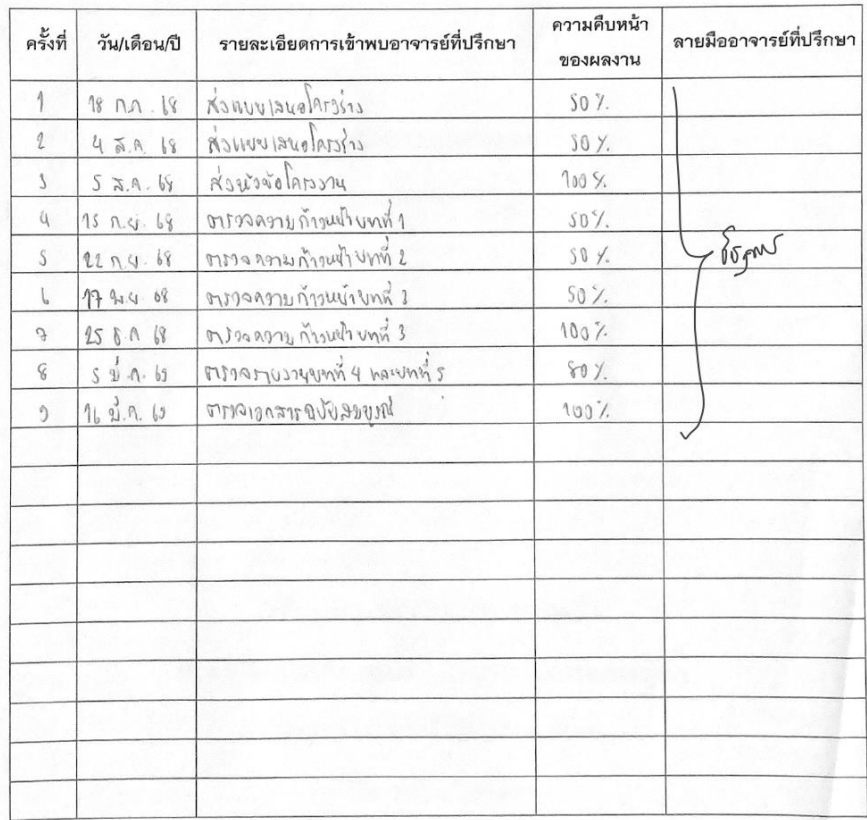 ครั้งที่ วัน/เดือน/ปี รายละเอียดการเข้าพบอาจารย์ที่ปรึกษา ความคืบหน้าของผลงาน ลายมืออาจารย์ที่ปรึกษา
1 18 ก.ค. 68 ส่งแบบเสนอโครงร่าง 50 %.
2 4 ส.ค. 68 ส่งแบบเสนอโครงร่าง 50 %.
3 5 ส.ค. 68 ส่งหัวข้อโครงงาน 100 %.
4 15 ก.ย. 68 ตรวจความก้าวหน้าบทที่ 1 50 %.
5 22 ก.ย. 68 ตรวจความก้าวหน้าบทที่ 2 50 %.
6 17 พ.ย. 68 ตรวจความก้าวหน้าบทที่ 3 50 %.
7 25 ธ.ค. 68 ตรวจความก้าวหน้าบทที่ 3 100 %.
8 5 มี.ค. 69 ตรวจรายงานบทที่ 4 และบทที่ 5 80 %.
9 16 มี.ค. 69 ตรวจเอกสารฉบับสมบูรณ์ 100 %.